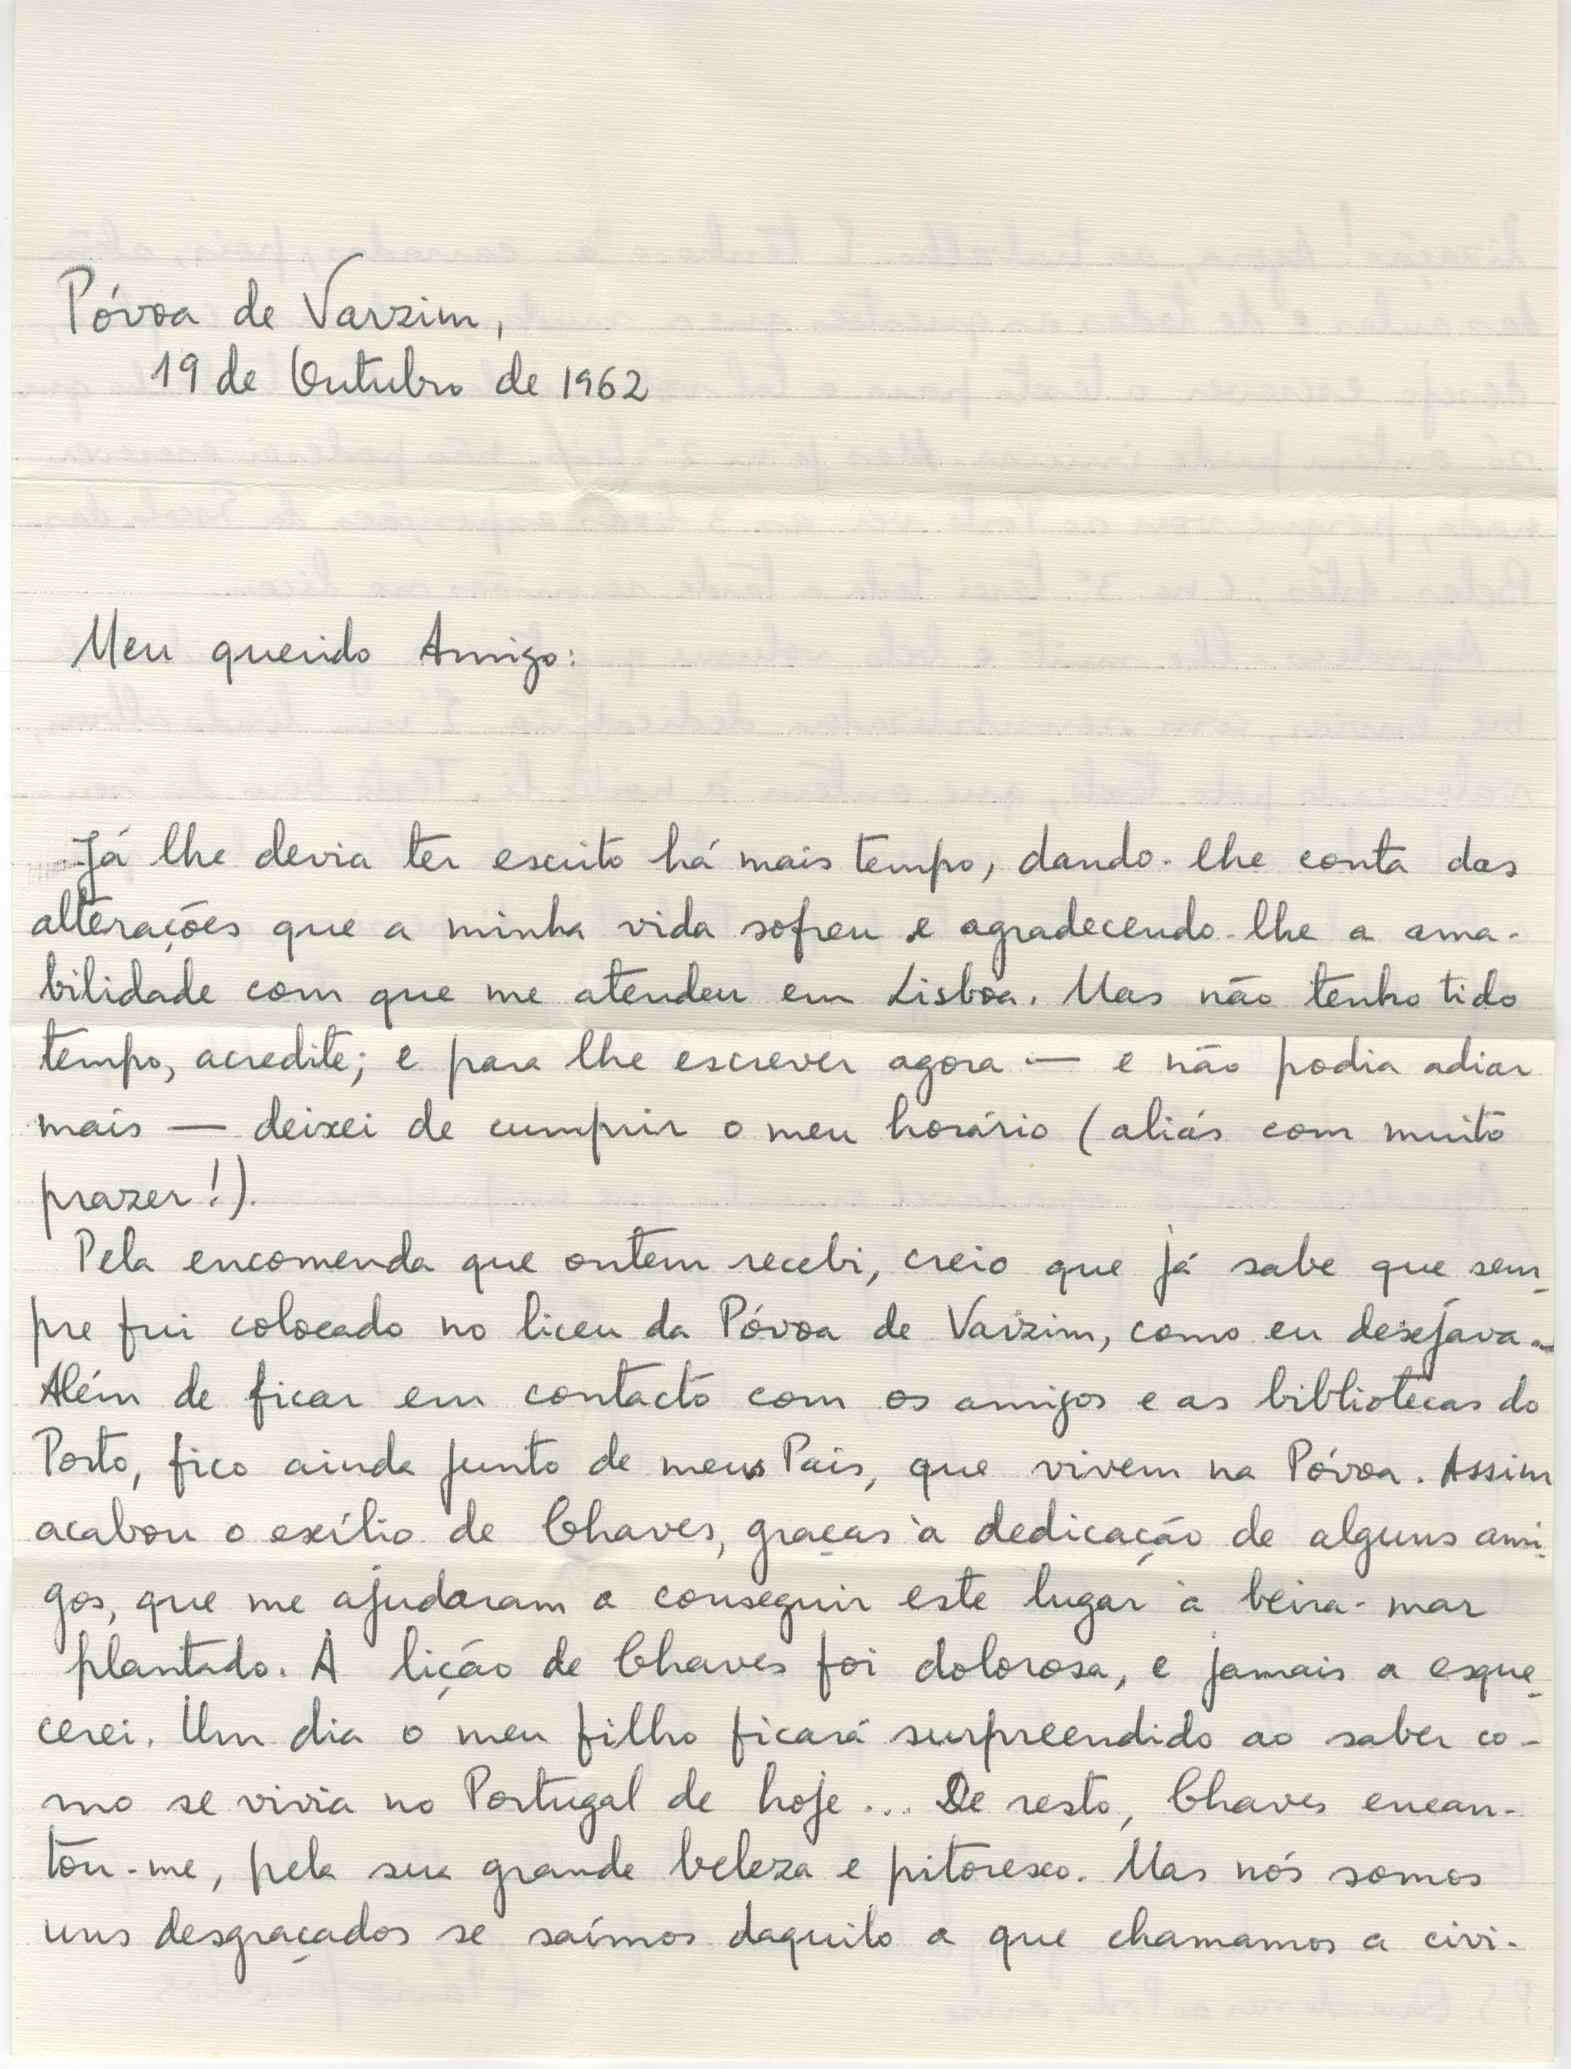 Póvoa de Varzim,
19 de Outubro de 1962
Meu querido Amigo:
Já lhe devia ter escrito há mais tempo, dando-lhe conta das
alterações que a minha vida sofreu e agradecendo-lhe a ama-
bilidade com que me atendeu em Lisboa. Mas não tenho tido
tempo, acredite; e para lhe escrever agora — e não podia adiar
mais — deixei de cumprir o meu horário (aliás com muito
prazer!).
Pela encomenda que ontem recebi, creio que já sabe que sem-
pre fui colocado no liceu da Póvoa de Varzim, como eu desejava.
Além de ficar em contacto com os amigos e as bibliotecas do
Porto, fico ainda junto de meus Pais, que vivem na Póvoa. Assim
acabou o exílio de Chaves, graças à dedicação de alguns ami-
gos, que me ajudaram a conseguir este lugar à beira-mar
plantado. A lição de Chaves foi dolorosa, e jamais a esque-
cerei. Um dia o meu filho ficará surpreendido ao saber co-
mo se vivia no Portugal de hoje... De resto, Chaves encan-
tou-me, pela sua grande beleza e pitoresco. Mas nós somos
uns desgraçados se saímos daquilo a que chamamos a civi-